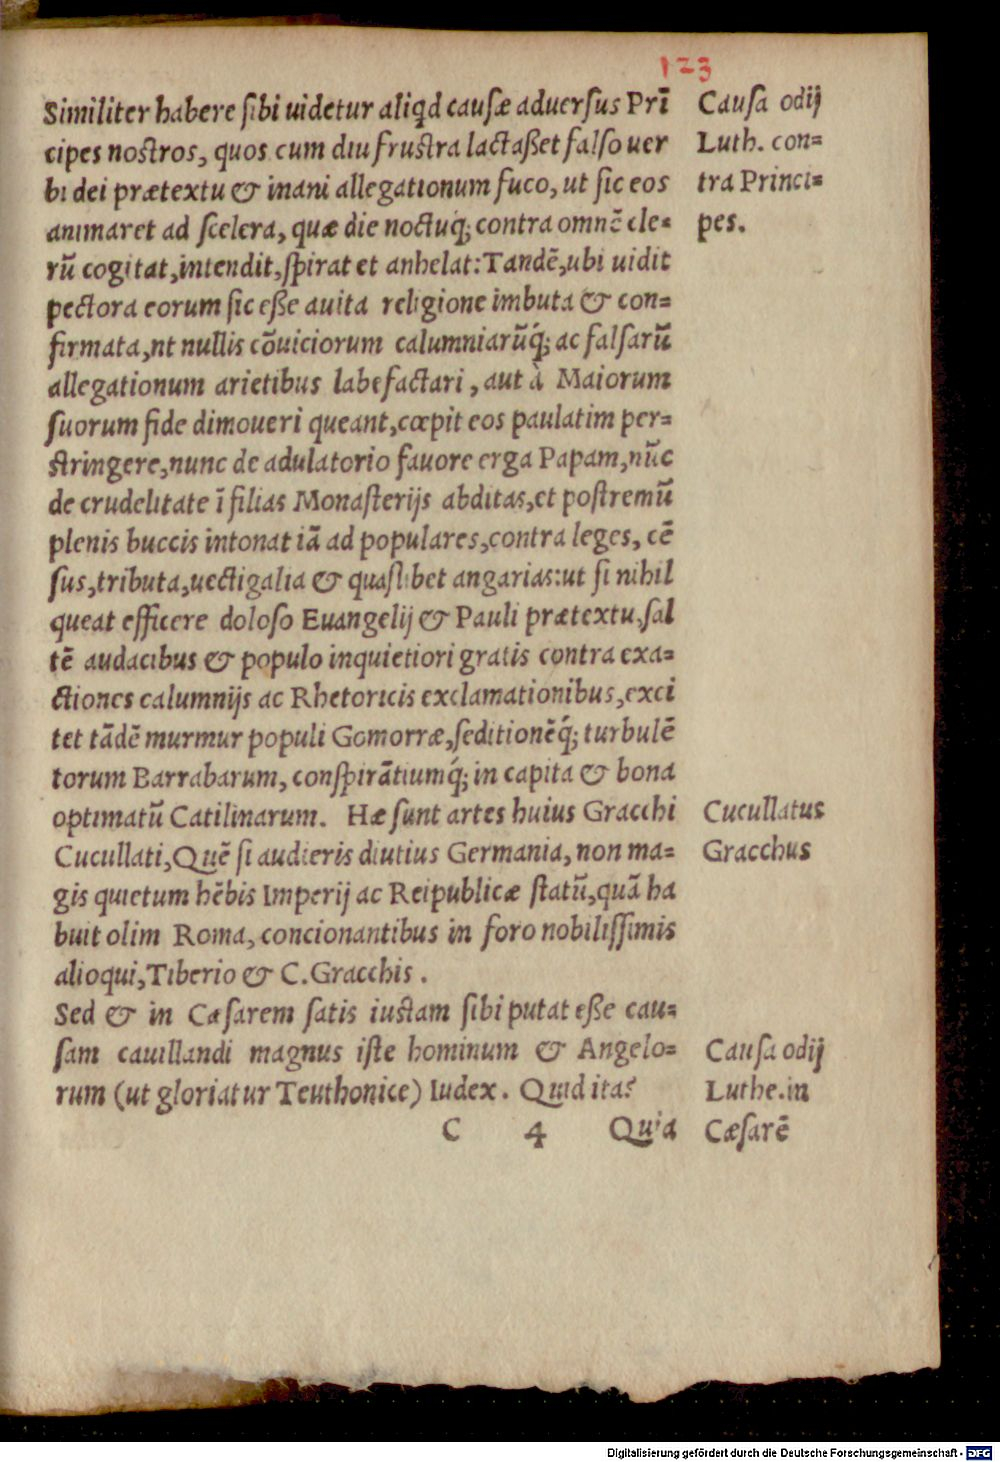 123
Similiter habere sibi uidetur aliqd causæ aduersus Prī
cipes nostros, quos cum diu frustra lactaßet falso uer
bi dei prætextu & inani allegationum fuco, ut sic eos
animaret ad scelera, quæ die noctuq; contra omnē cle=
rū cogitat, intendit, spirat et anhelat: Tandē, ubi uidit
pectora eorum sic eße auita religione imbuta & con=
firmata, nt nullis cōuiciorum calumniarūq́; ac falsarū
allegationum arietibus labefactari, aut à Maiorum
suorum fide dimoueri queant, cœpit eos paulatim per=
stringere, nunc de adulatorio fauore erga Papam, nūc
de crudelitate ī filias Monasterijs abditas, et postremū
plenis buccis intonat iā ad populares, contra leges, cē
sus, tributa, uectigalia & quaslibet angarias: ut si nihil
queat efficere doloso Euangelij & Pauli prætextu, sal
tē audacibus & populo inquietiori gratis contra exa=
ctiones calumnijs ac Rhetoricis exclamationibus, exci
tet tādē murmur populi Gomorræ, seditionēq́; turbulē
torum Barrabarum, conspirātiumq́; in capita & bona
optimatū Catilinarum. Hæ sunt artes huius Gracchi
Cucullati, Quē si audieris diutius Germania, non ma=
gis quietum hēbis Imperij ac Reipublicæ statū, quā ha
buit olim Roma, concionantibus in foro nobilissimis
alioqui, Tiberio & C. Gracchis.
Sed & in Cæsarem satis iustam sibi putat eße cau=
sam cauillandi magnus iste hominum & Angelo=
rum (ut gloriatur Teuthonice) Iudex. Quid ita?
C 4 Quia
Causa odij
Luth. con=
tra Princi=
pes.
Cucullatus
Gracchus
Causa odij
Luthe. in
Cæsarē
Digitalisierung gefördert durch die Deutsche Forschungsgemeinschaft - DFG